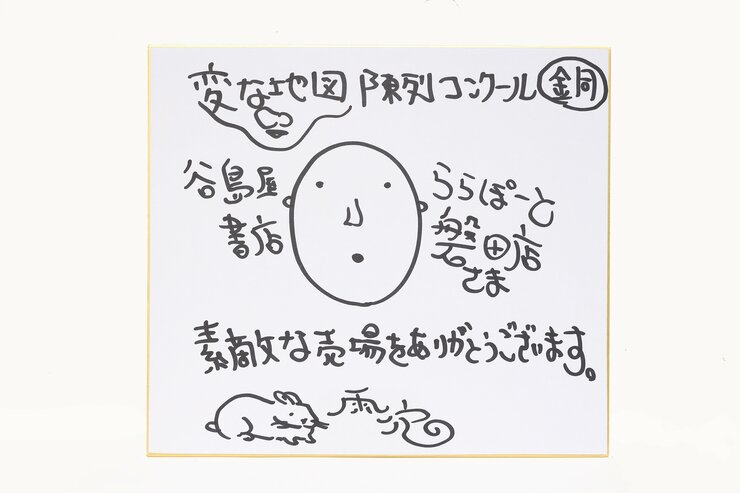 変な地図 陳列コンクール 銅
谷島屋
書店
ららぽーと
磐田店
さま
素敵な売場をありがとうございます。
雨穴